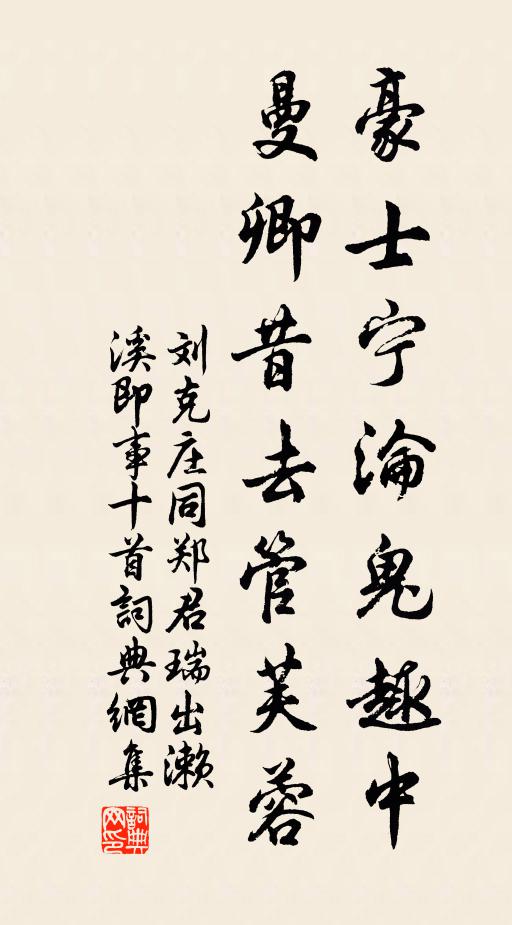 豪士宁淪鬼趣中
曼卿昔去管芙蓉
刘克庄同郑君瑞出濑
溪即事十首詞典網集
詞典